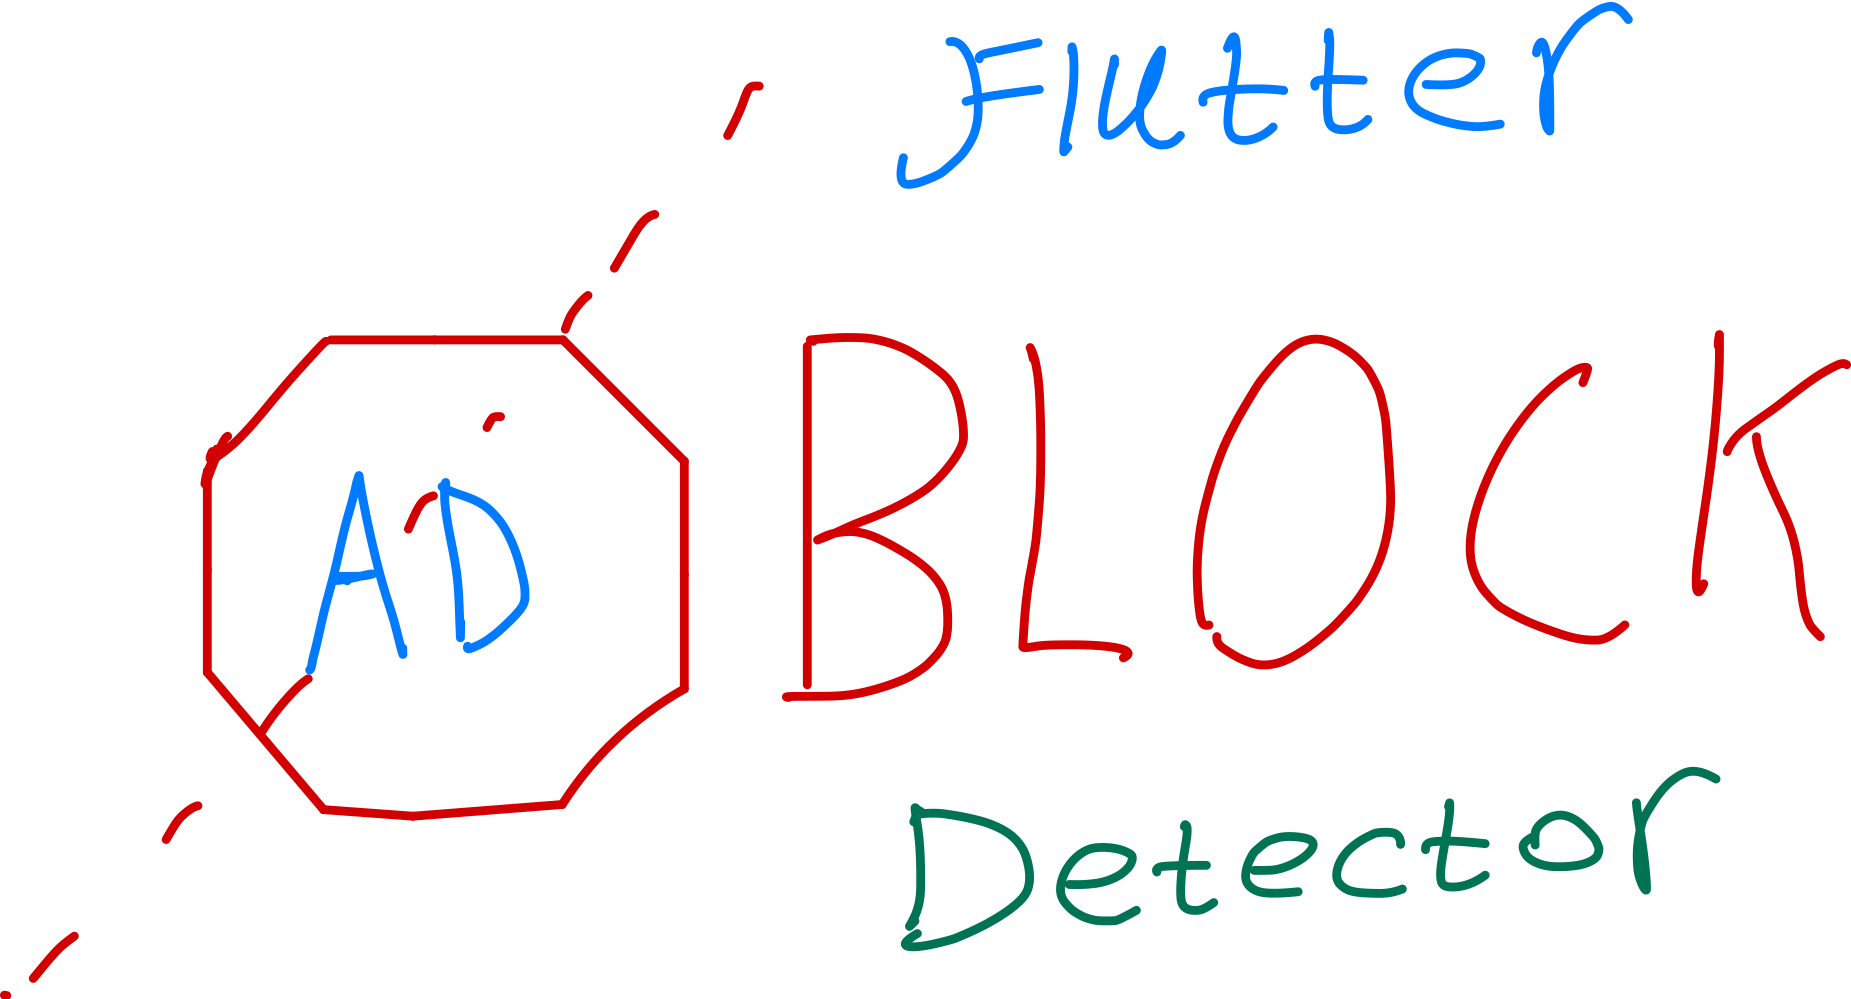 Flutter
AD BLOCK
Detector